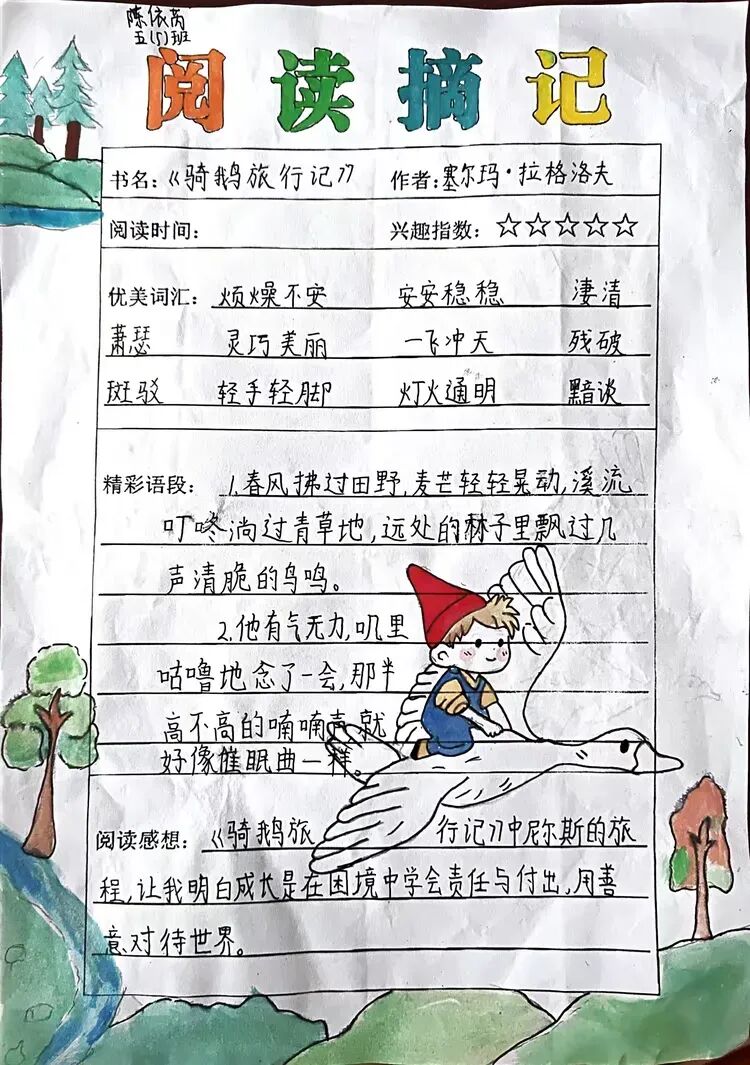 陈依芮
五(5)班
阅读摘记
书名:《骑鹅旅行记》 作者:塞尔玛·拉格洛夫
阅读时间: 兴趣指数:☆☆☆☆☆
优美词汇: 烦燥不安 安安稳稳 凄清
萧瑟 灵巧美丽 一飞冲天 残破
斑驳 轻手轻脚 灯火通明 黯淡
精彩语段: 1.春风拂过田野,麦芒轻轻晃动,溪流
叮咚淌过青草地,远处的林子里飘过几
声清脆的鸟鸣。
2.他有气无力,叽里
咕噜地念了一会,那半
高不高的喃喃声就
好像催眠曲一样。
阅读感想:《骑鹅旅行记》中尼尔斯的旅
程,让我明白成长是在困境中学会责任与付出,用善
意对待世界。